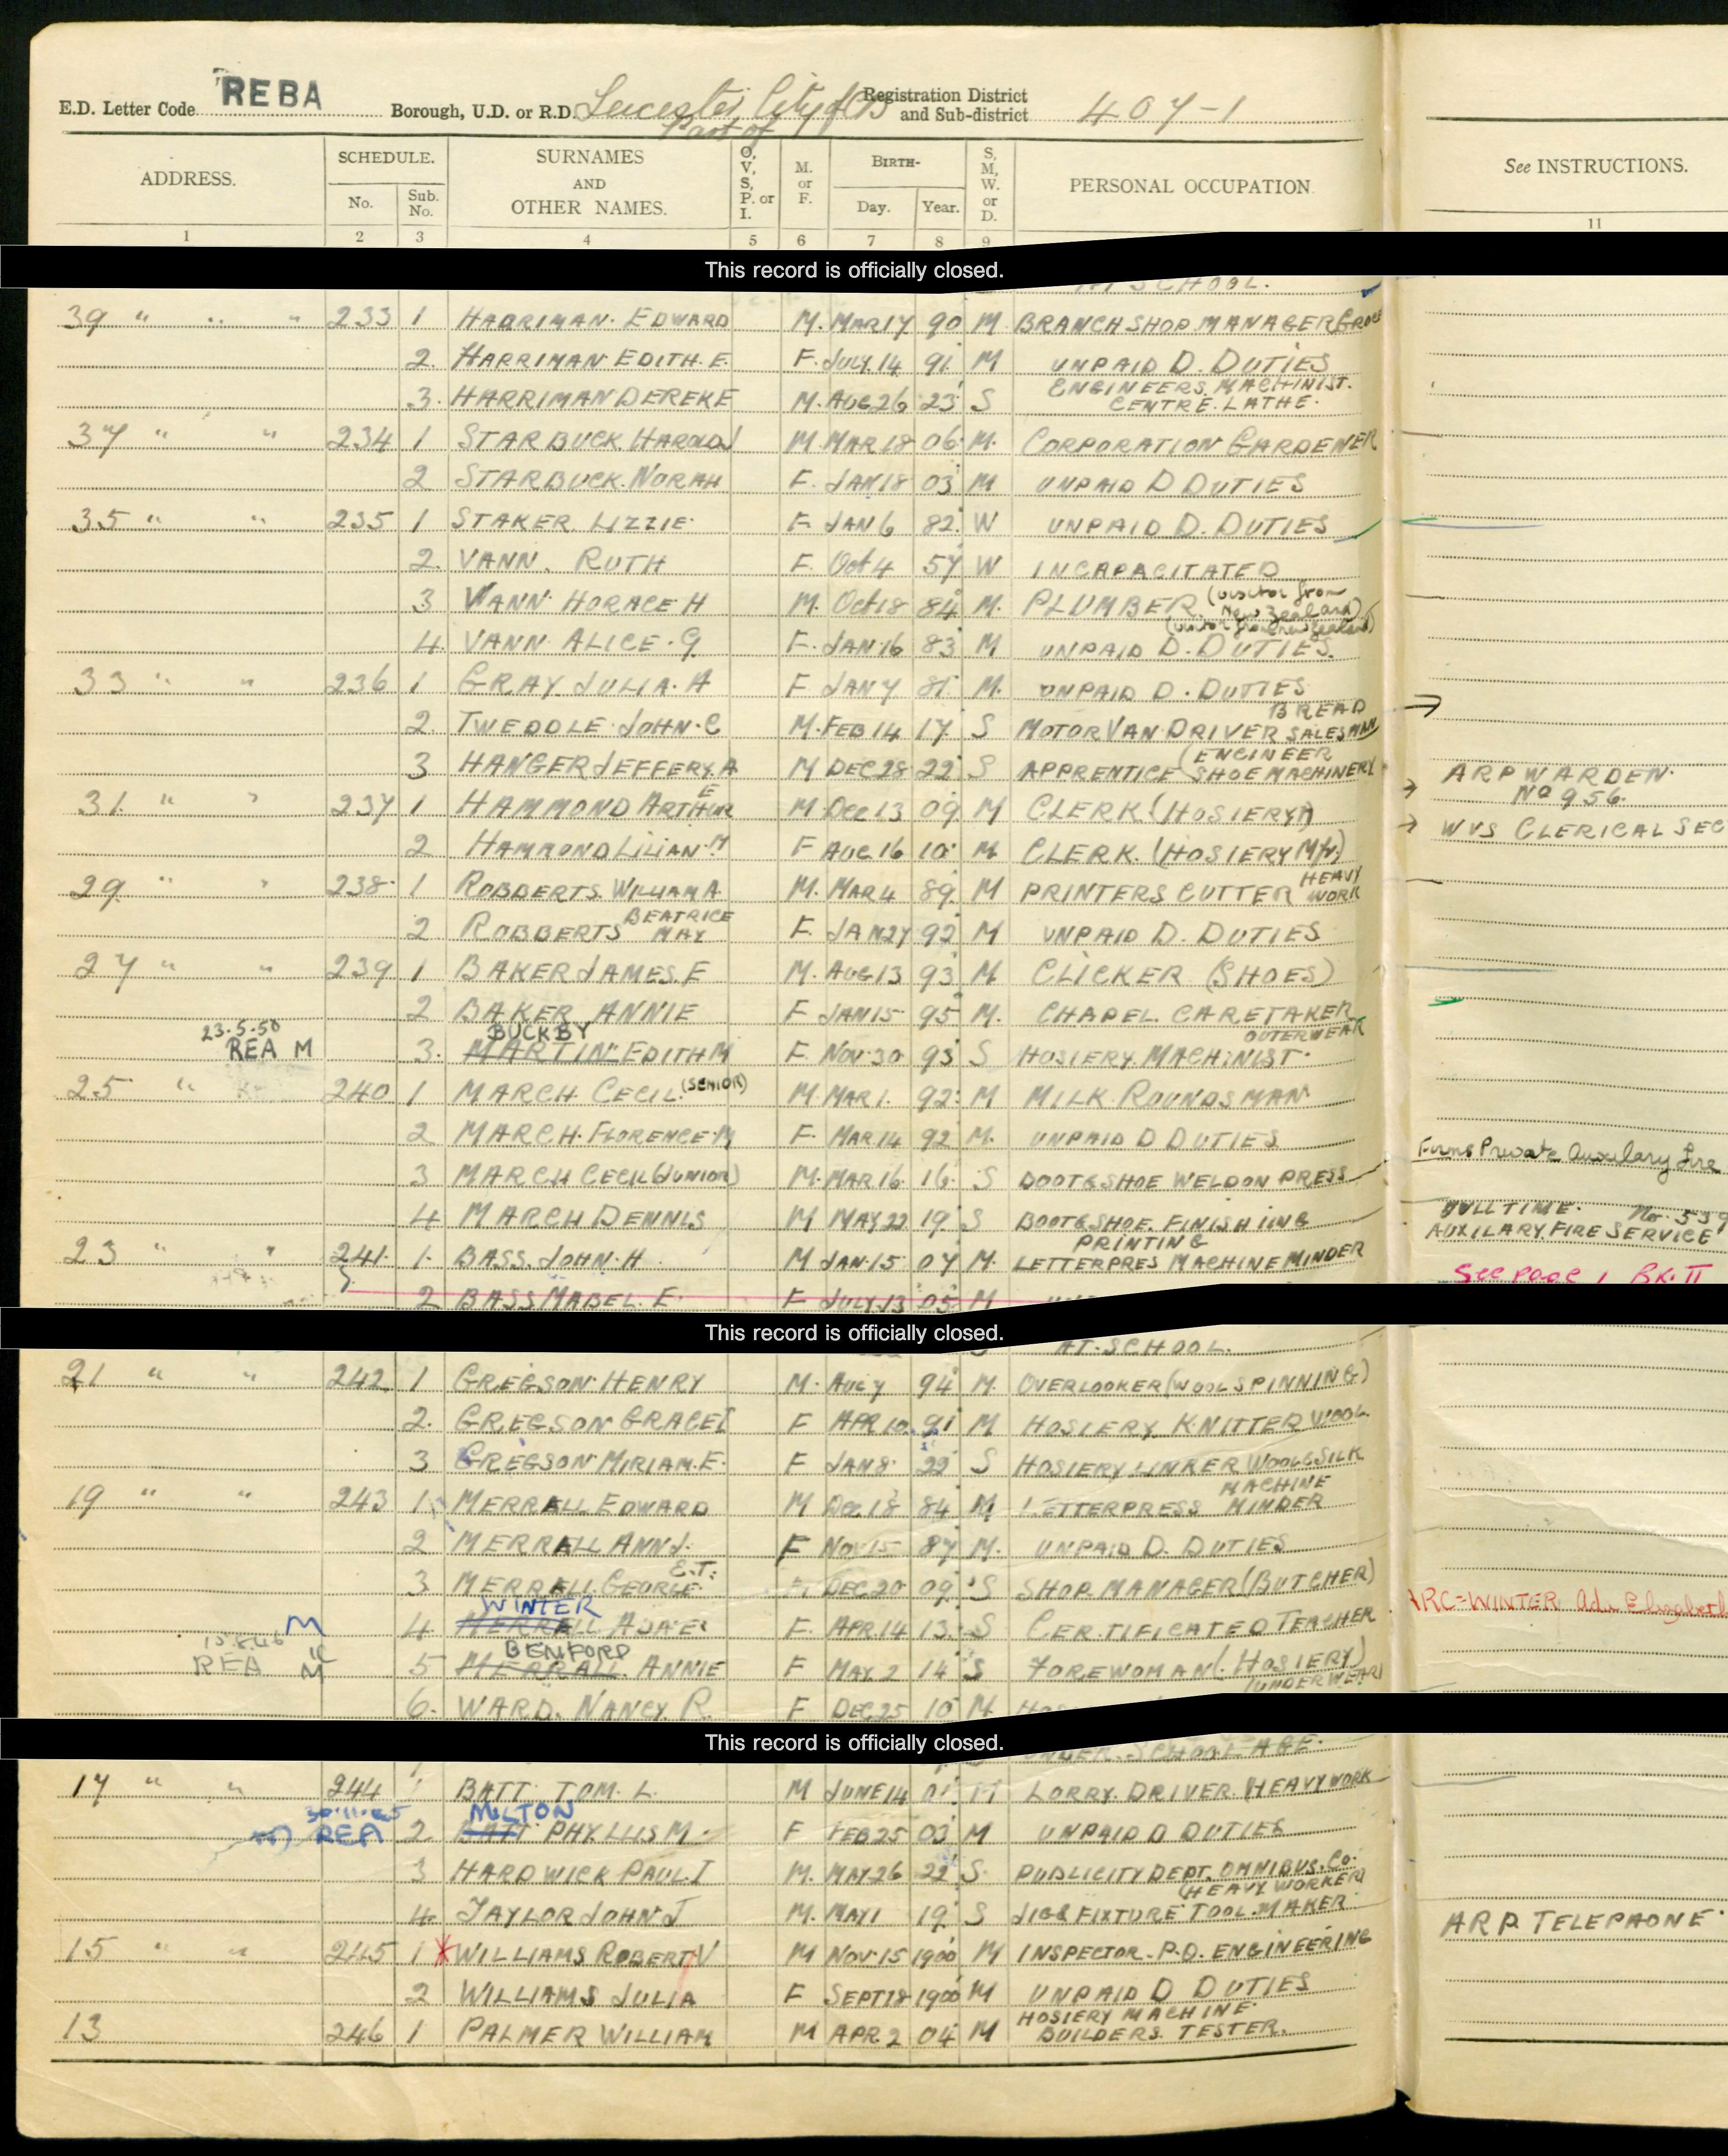 E.D. Letter Code REBA Borough, U.D. or R.D. Leicester City of CB Registration District and Sub-district 407-1
Part of
ADDRESS. SCHEDULE. SURNAMES AND OTHER NAMES. O, V, S, P. or I. M. or F. BIRTH- S, M, W. or D. PERSONAL OCCUPATION See INSTRUCTIONS.
No. Sub. No. Day. Year.
1 2 3 4 5 6 7 8 9 11
This record is officially closed.
SCHOOL.
39 " " " 233 1 HARRIMAN. EDWARD M. MAR 17 90 M BRANCH SHOP MANAGER
2. HARRIMAN EDITH. E. F. JULY. 14 91. M UNPAID D. DUTIES
3. HARRIMAN DEREK E M. AUG 26 23 S ENGINEERS. MACHINIST. CENTRE. LATHE.
37 " " 234 1 STARBUCK. HAROLD J M. MAR 18 06 M. CORPORATION GARDENER
2 STARBUCK. NORAH F. JAN 18 03 M UNPAID D DUTIES
35 " " 235 1 STAKER. LIZZIE F JAN 6 82. W UNPAID D. DUTIES
2. VANN. RUTH F. Oct 4 57 W INCAPACITATED
3 VANN. HORACE H M. Oct 18 84 M. PLUMBER (visitor from New Zealand)
4. VANN ALICE. G. F. JAN 16 83 M UNPAID D. DUTIES. (visitor from New Zealand)
33 " " 236 1 GRAY JULIA. A F JAN 7 81. M. UNPAID D. DUTIES
2. TWEDDLE. JOHN. C M. FEB 14 17. S MOTOR VAN DRIVER BREAD SALESMAN
3 HANGER JEFFERY. A M DEC 28 22 S APPRENTICE (ENGINEER SHOE MACHINERY
ARP WARDEN. No 956.
31. " " 237 1 HAMMOND ARTHUR E M. Dec 13 09. M CLERK (HOSIERY)
WVS CLERICAL SEC
2 HAMMOND LILIAN. M F AUG 16 10. M CLERK. (HOSIERY Mfr)
29. " " 238. 1 ROBBERTS. WILLIAM A. M. MAR 4 89. M PRINTERS CUTTER HEAVY WORK
2 ROBBERTS BEATRICE MAY F. JAN 27 92 M UNPAID D. DUTIES
27 " " 239 1 BAKER JAMES. F M. AUG 13 93 M CLICKER (SHOES)
2 BAKER ANNIE F JAN 15 95 M. CHAPEL. CARETAKER
23.5.50 REA M 3. MARTIN BUCKBY EDITH M F. NOV. 30 93 S HOSIERY. MACHINIST. OUTERWEAR
25 " 240 1 MARCH. CECIL. (SENIOR) M. MAR 1. 92. M MILK ROUNDSMAN
2 MARCH. FLORENCE. M F. MAR 14 92 M. UNPAID D DUTIES
Firms Private Auxilary Fire
3 MARCH CECIL (JUNIOR) M. MAR 16 16. S BOOT & SHOE WELDON PRESS
4 MARCH DENNIS M MAY 22 19 S BOOT & SHOE. FINISHING
FULL TIME. No. 539
AUXILARY. FIRE SERVICE
23 " " 241. 1. BASS. JOHN. H. M JAN. 15 07 M. PRINTING LETTERPRES MACHINE MINDER
See page 1 BK. II
2 BASS MABEL. E. F JULY. 13 05 M
This record is officially closed.
AT. SCHOOL.
21 " " 242. 1 GREGSON. HENRY M. AUG 7 94 M. OVERLOOKER (WOOL SPINNING)
2. GREGSON GRACE F APR 10. 91 M HOSIERY KNITTER WOOL
3 GREGSON. MIRIAM. E. F JAN 8. 22 S HOSIERY. LINKER WOOL & SILK
19 " " 243 1. MERRALL. EDWARD M Dec. 18 84 M LETTERPRESS MACHINE MINDER
2 MERRALL ANN J. F NOV 15 87 M. UNPAID D. DUTIES
3 MERRALL. GEORGE. E.T. DEC 20 09. S SHOP. MANAGER (BUTCHER)
ARC = WINTER Ada Elizabeth
M 4. MERRALL WINTER ADA E. F. APR. 14 13. S CERTIFICATED TEACHER
REA M 5 MERRALL. BENFORD ANNIE F MAY. 2 14 S FOREWOMAN (HOSIERY) (UNDERWEAR)
6. WARD. NANCY. R. F DEC. 25 10 M
This record is officially closed.
UNDER. SCHOOL AGE.
17 " " 244 1 BATT TOM. L. M JUNE 14 01. M LORRY. DRIVER. HEAVY WORK
30.11.65 REA 2. BATT MILTON PHYLLIS M. F FEB 25 03 M UNPAID D DUTIES
3 HARDWICK PAUL. I M. MAY 26 22 S. PUBLICITY DEPT. OMNIBUS. Co.
4. TAYLOR JOHN J M. MAY 1 19 S JIG & FIXTURE TOOL. MAKER (HEAVY WORKER)
ARP. TELEPHONE
15 " " 245 1 WILLIAMS ROBERT V M NOV. 15 1900 M INSPECTOR. P.O. ENGINEERING
2 WILLIAMS JULIA F SEPT 18 1900 M UNPAID D DUTIES
13 246 1 PALMER WILLIAM M APR 2 04 M HOSIERY MACHINE BUILDERS TESTER.